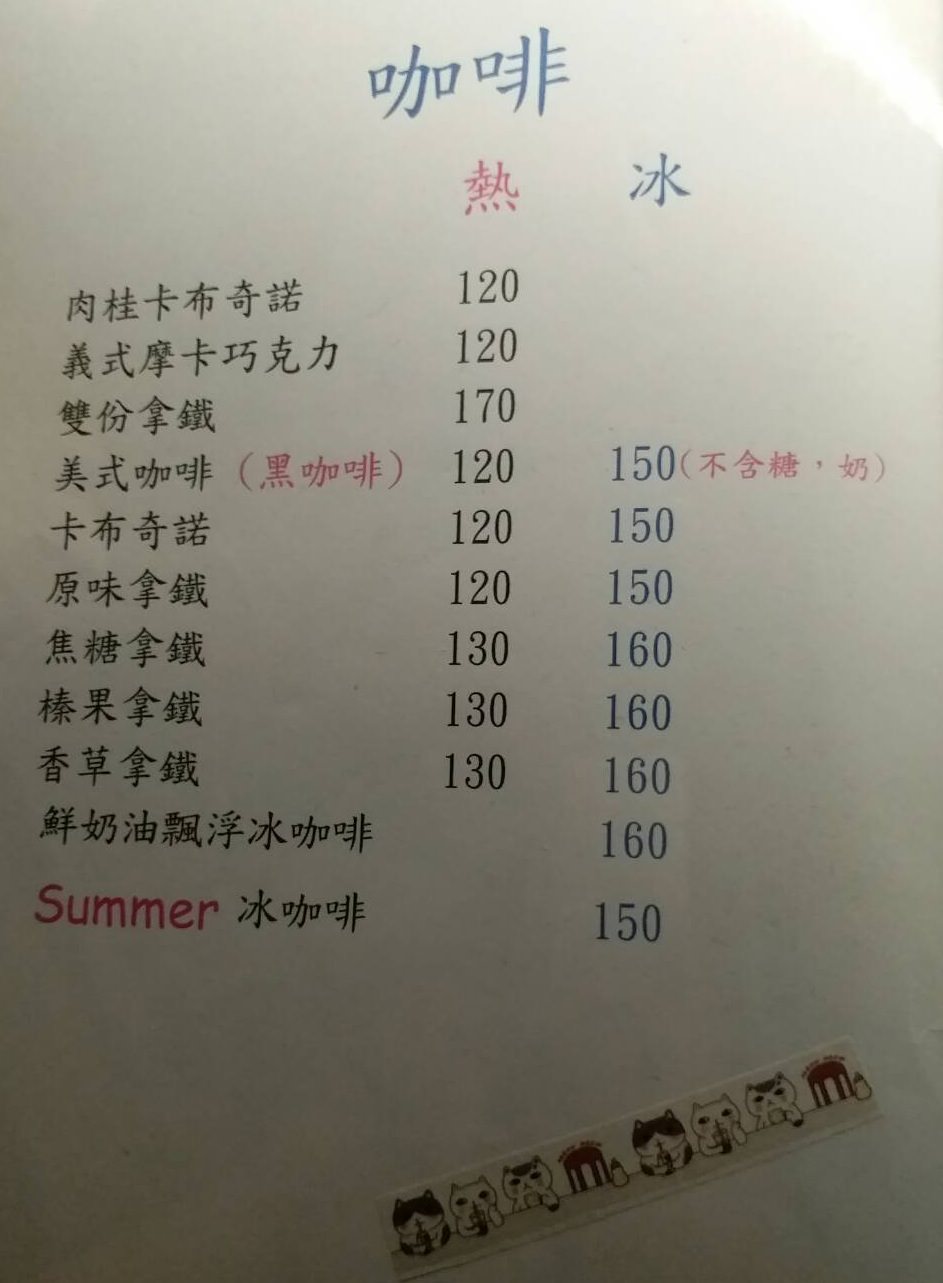 咖啡
熱 冰
肉桂卡布奇諾 120
義式摩卡巧克力 120
雙份拿鐵 170
美式咖啡（黑咖啡） 120 150(不含糖，奶)
卡布奇諾 120 150
原味拿鐵 120 150
焦糖拿鐵 130 160
榛果拿鐵 130 160
香草拿鐵 130 160
鮮奶油飄浮冰咖啡 160
Summer 冰咖啡 150